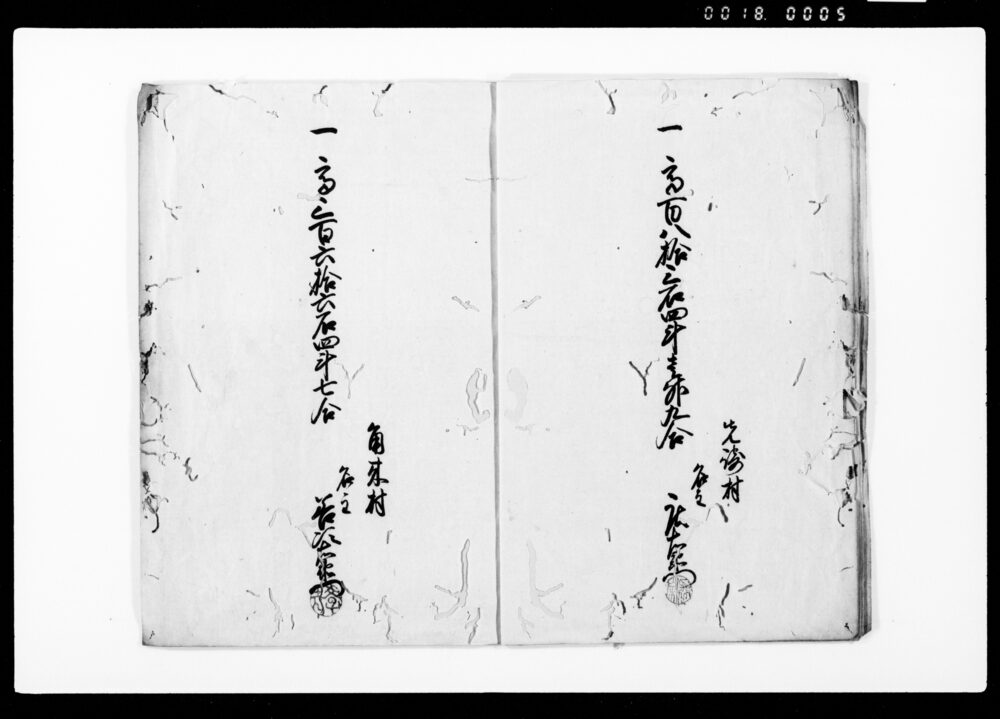 0018. 0005
一 高百八拾三石四斗三升九合
村
名主
一 高三百六拾六石四斗七合
角来村
名主